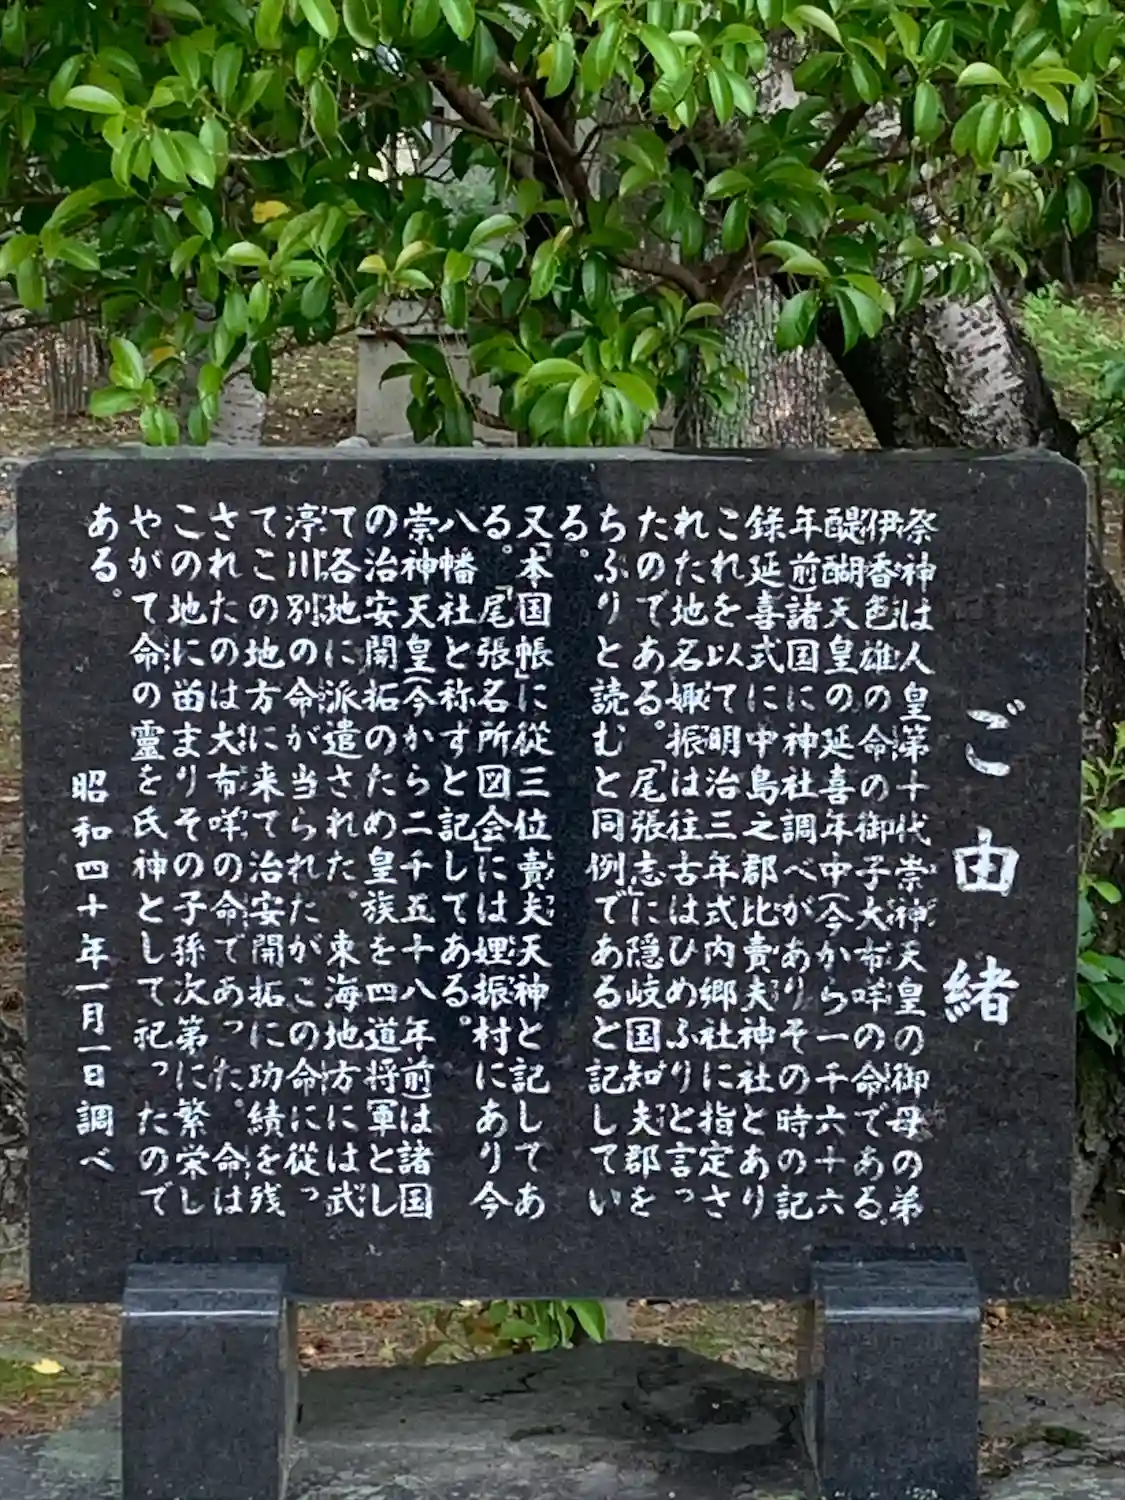 ご由緒
祭神は人皇第十代崇神天皇の御母の弟
伊香色雄の命の御子大布咩の命である。
醍醐天皇の延喜年中(今から一千六十六
年前)諸国に神社調べがありその時の記
錄延喜式に中島之郡比賣夫神社とあり
これを以て明治三年式内郷社に指定さ
れた地名娵振は往古はひめふりと言っ
たのである。「尾張志」に隠岐国知夫郡を
ちふりと読むと同例であると記してい
る。
又「本国帳」に従三位賣夫天神と記してあ
る。「尾張名所図会」には娌振村にあり今
八幡社と称すと記してある。
崇神天皇(今から二千五十八年前)は諸国
の治安開拓のため皇族を四道将軍とし
て各地に派遣された。東海地方には武
渟川別の命が当られたがこの命に從っ
てこの地方に来て治安開拓に功績を残
されたのは大布咩の命であった。命は
この地に畄まりその子孫次第に繁栄し
やがて命の靈を氏神として祀ったので
ある。
昭和四十年一月一日調べ